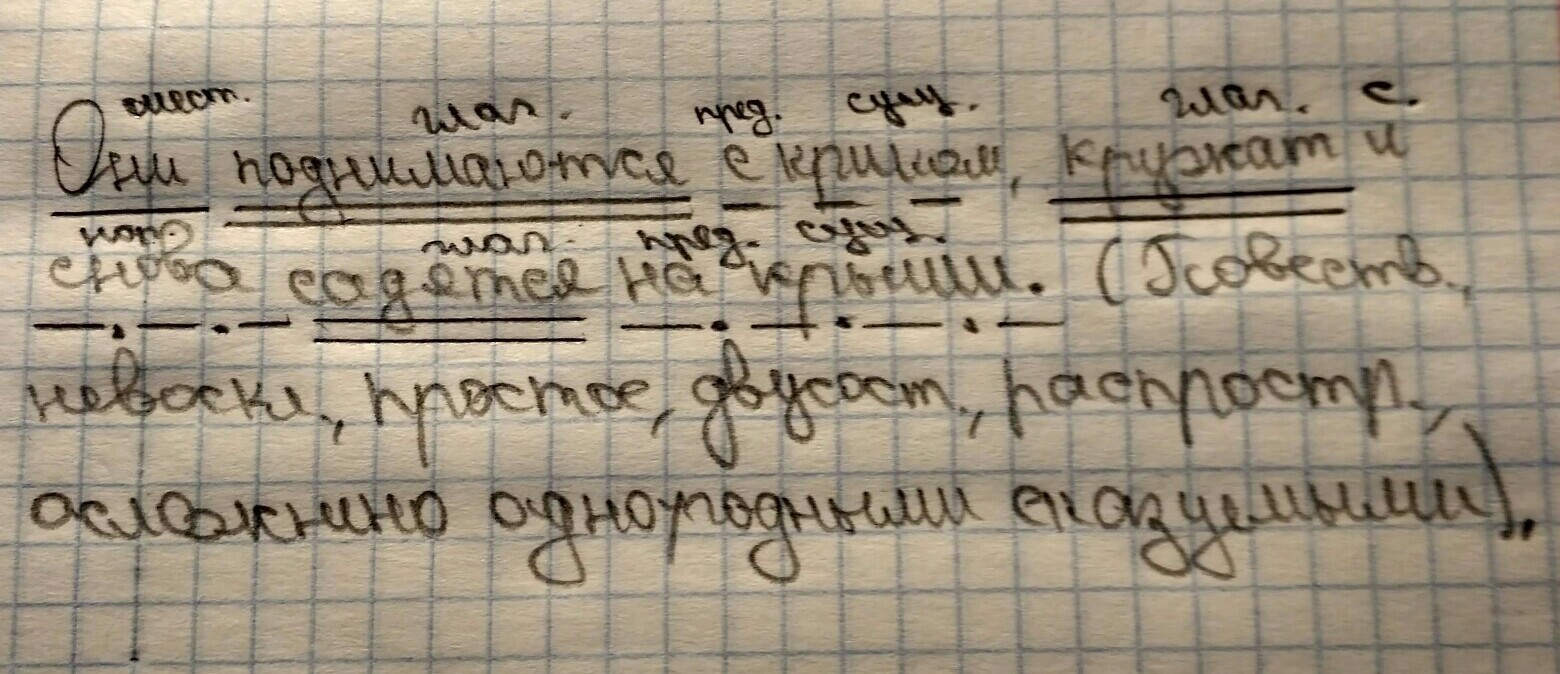 мест. глаг. пред. сущ. глаг. с.
Они поднимаются с криком, кружат и
нареч глаг. пред. сущ.
снова садятся на крыши. (Повеств.,
невоскл., простое, двусост., распростр.,
осложнино однородными сказуемыми).